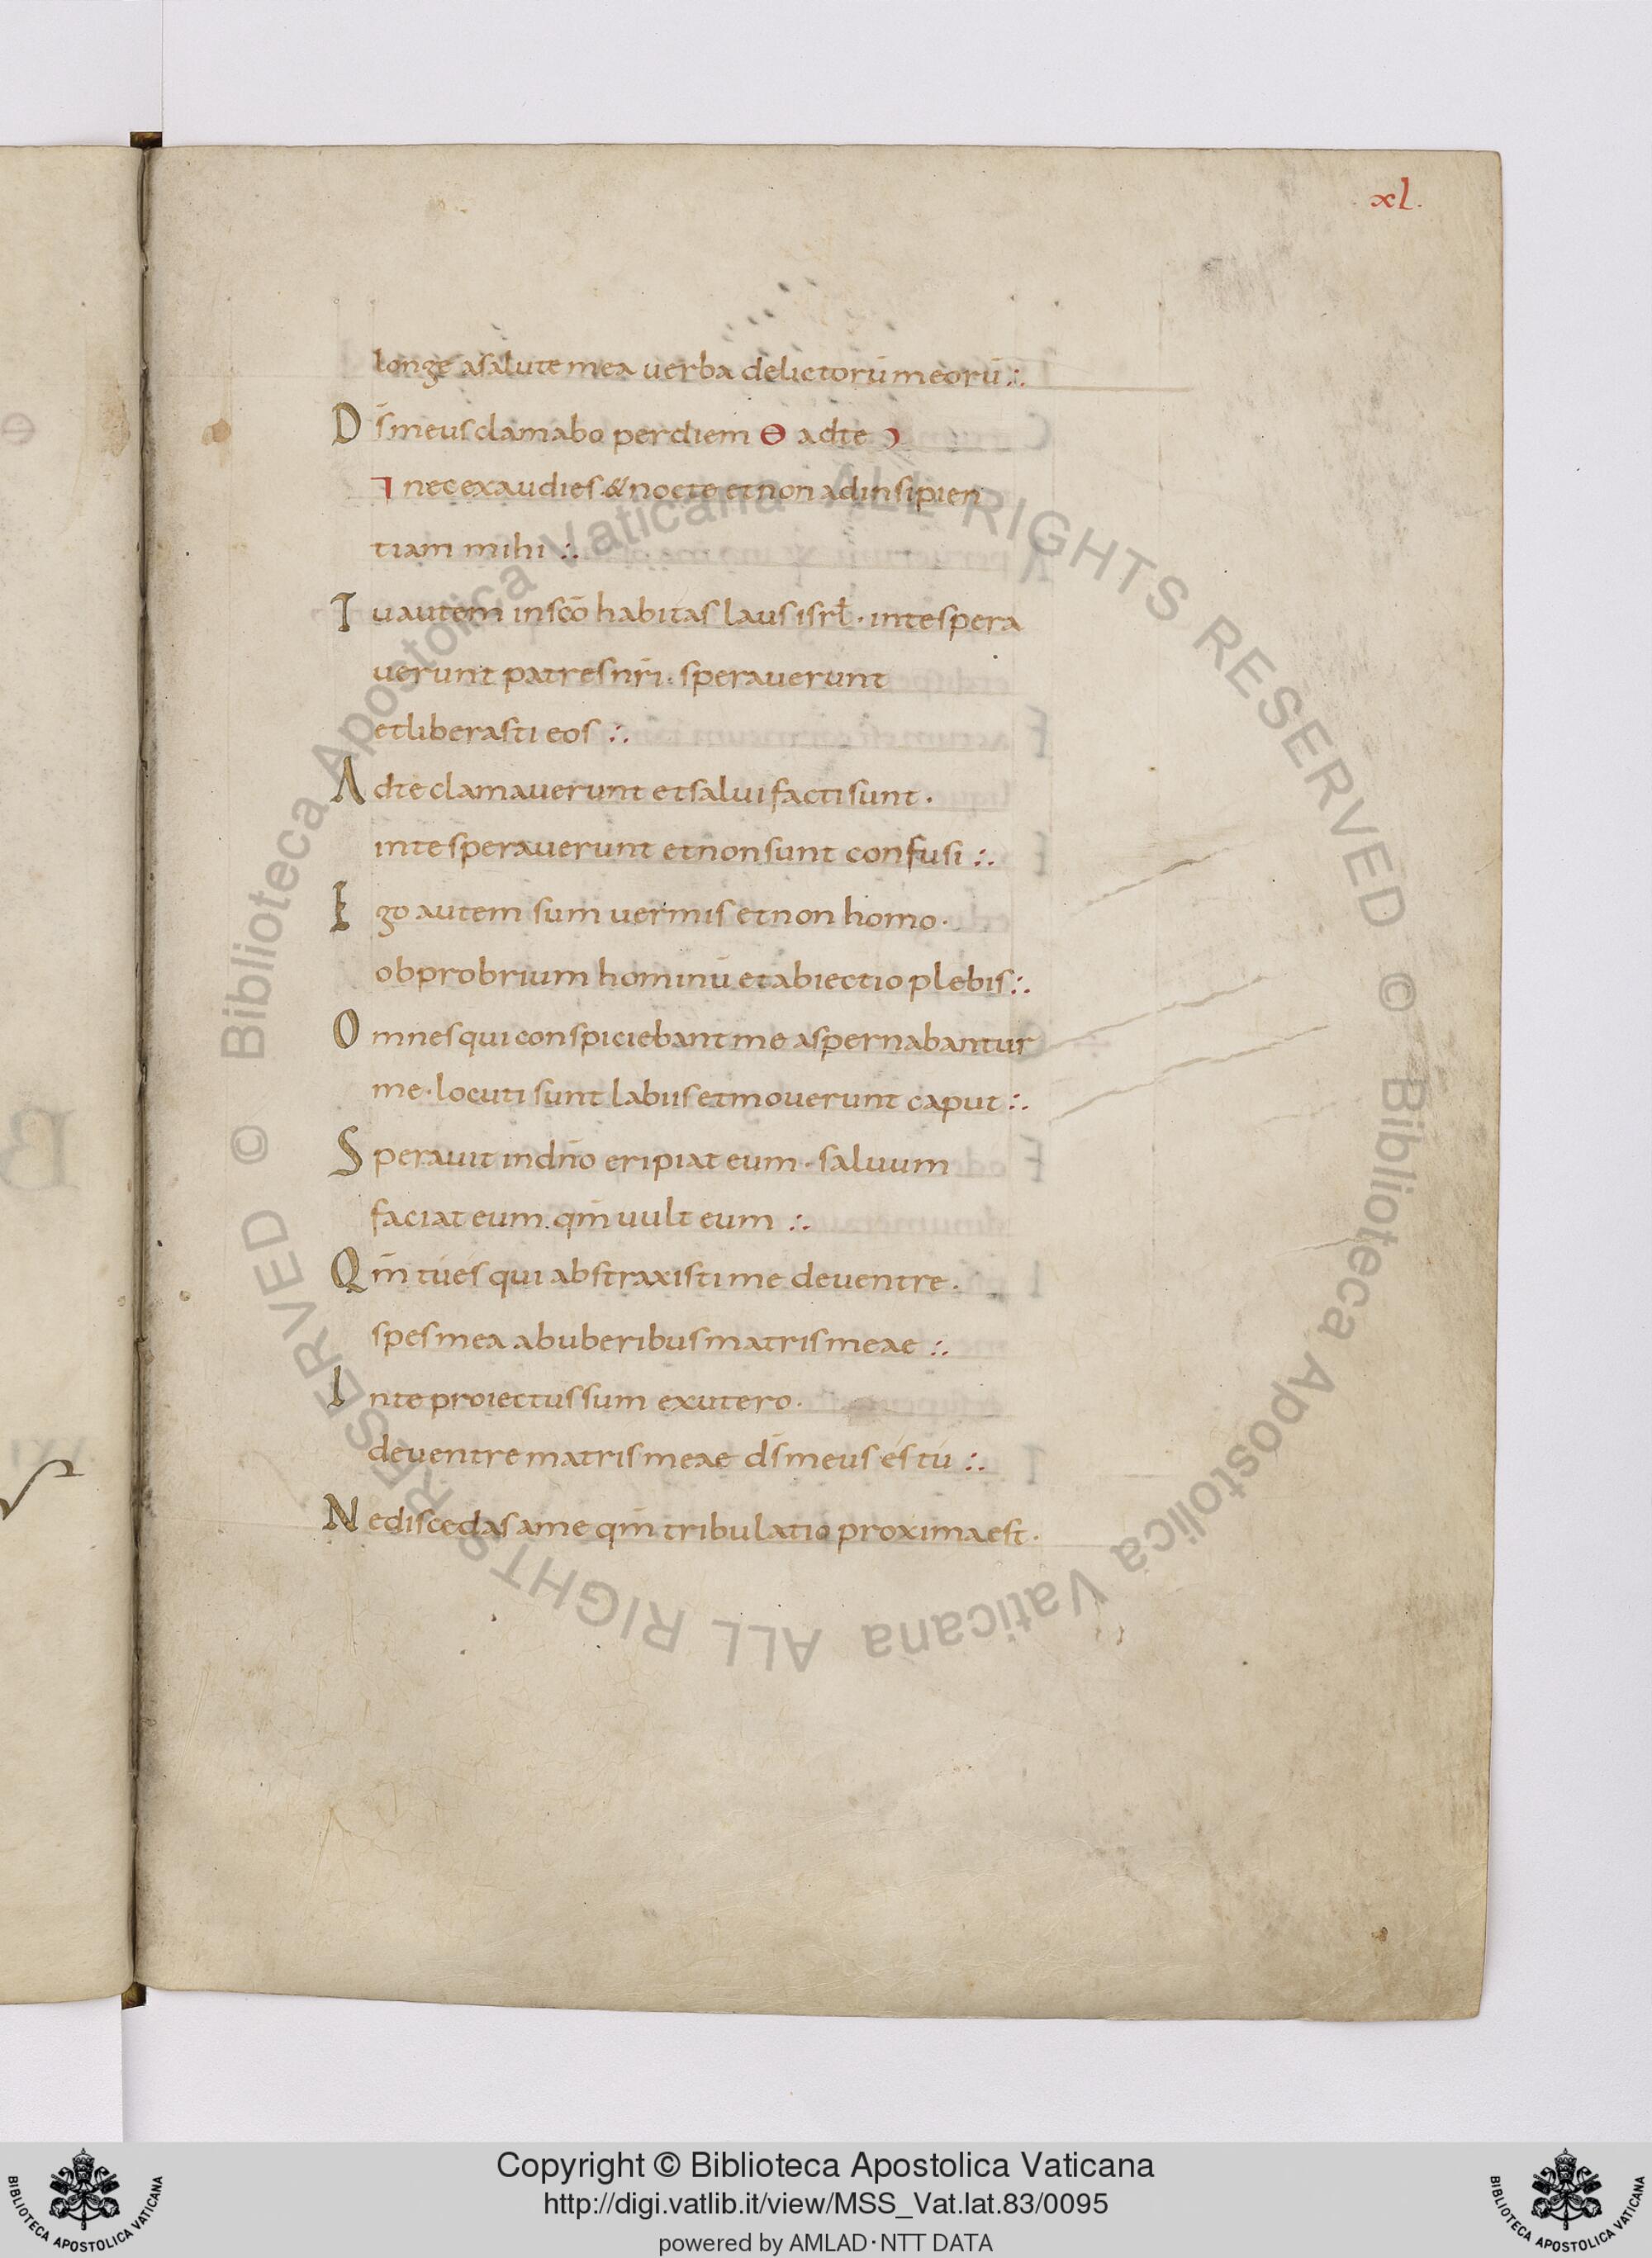 xl.
longe asalute mea uerba delictorū meorū :.
D s̄ meus clamabo perdiem Θ adte ͻ
⁊ nec exaudies · & nocte et non ad insipien
tiam mihi :.
T u autem insc̄o habitas laus isrł · inte spera
uerunt patres nr̄i · sperauerunt
et liberasti eos :.
A dte clamauerunt et salui facti sunt ·
inte sperauerunt et non sunt confusi :.
E go autem sum uermis et non homo ·
obprobrium hominū et abiectio plebis :.
O mnes qui conspiciebant me aspernabantur
me · locuti sunt labiis et mouerunt caput :.
S perauit in dn̄o eripiat eum · saluum
faciat eum · qm̄ uult eum :.
Q m̄ tú és qui abstraxisti me de uentre ·
spes mea ab uberibus matris meae :.
I n te proiectus sum ex utero ·
de uentre matris meae ds̄ meus és tú :.
N e discedas a me qm̄ tribulatio proxima est ·
© Biblioteca Apostolica Vaticana ALL RIGHTS RESERVED © Biblioteca Apostolica Vaticana ALL RIGHTS RESERVED
Copyright © Biblioteca Apostolica Vaticana
http://digi.vatlib.it/view/MSS_Vat.lat.83/0095
powered by AMLAD·NTT DATA
BIBLIOTECA APOSTOLICA VATICANA
BIBLIOTECA APOSTOLICA VATICANA